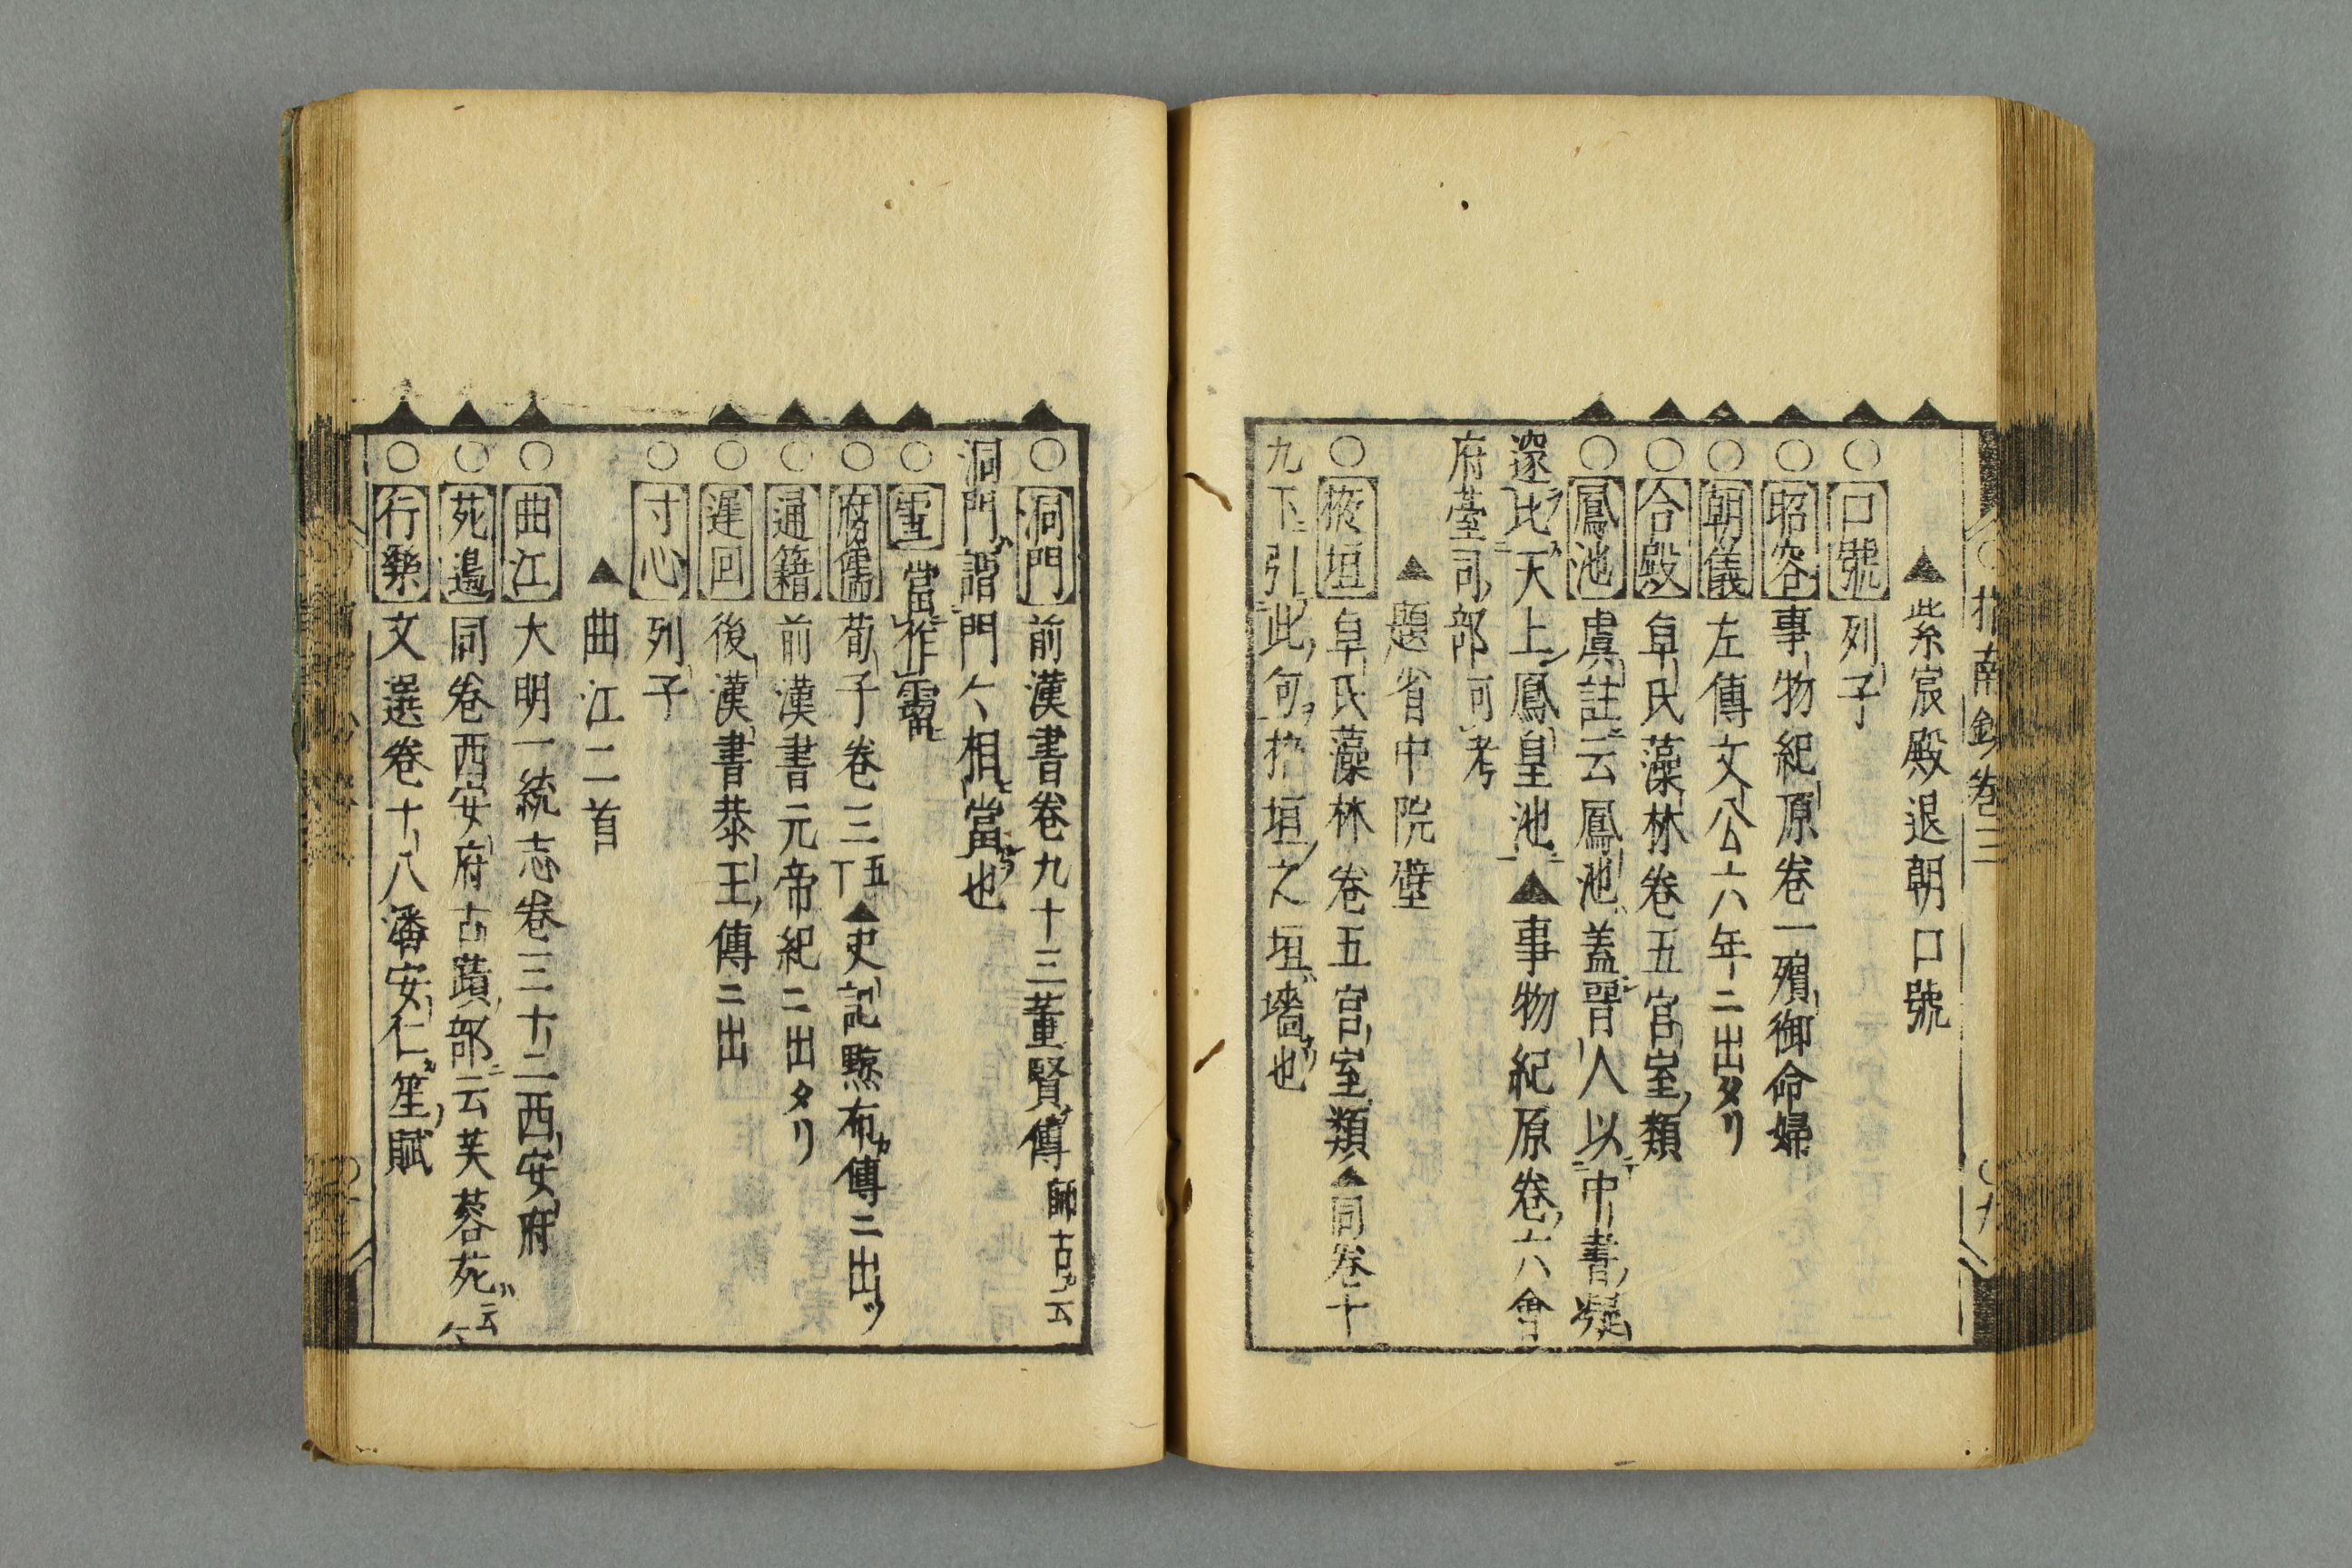 指南鈔卷三
▲紫宸殿退朝口號
○口號 列子
○昭容 事物紀原卷一殞御命婦
○朝儀 左傳文公六年ニ出タリ
○合殿 阜氏藻林卷五宮室類
○鳳池 虞註云鳳池蓋晋人以中書凝
邃比天上鳳皇池▲事物紀原卷六會
府臺司部可考
▲題省中院壁
○掖垣 阜氏藻林卷五宮室類▲同卷十
九下引此句掖垣之垣墻也
○洞門 前漢書卷九十三董賢傳師古云
洞門謂門々相當也
○雪 當作霤
○腐儒 荀子卷三五丁▲史記黥布傳ニ出ツ
○通籍 前漢書元帝紀ニ出タリ
○遲回 後漢書恭王傳ニ出
○寸心 列子
▲曲江二首
○曲江 大明一統志卷三十二西安府
○苑邊 同卷西安府古蹟部云芙蓉苑云々
○行樂 文選卷十八潘安仁笙賦